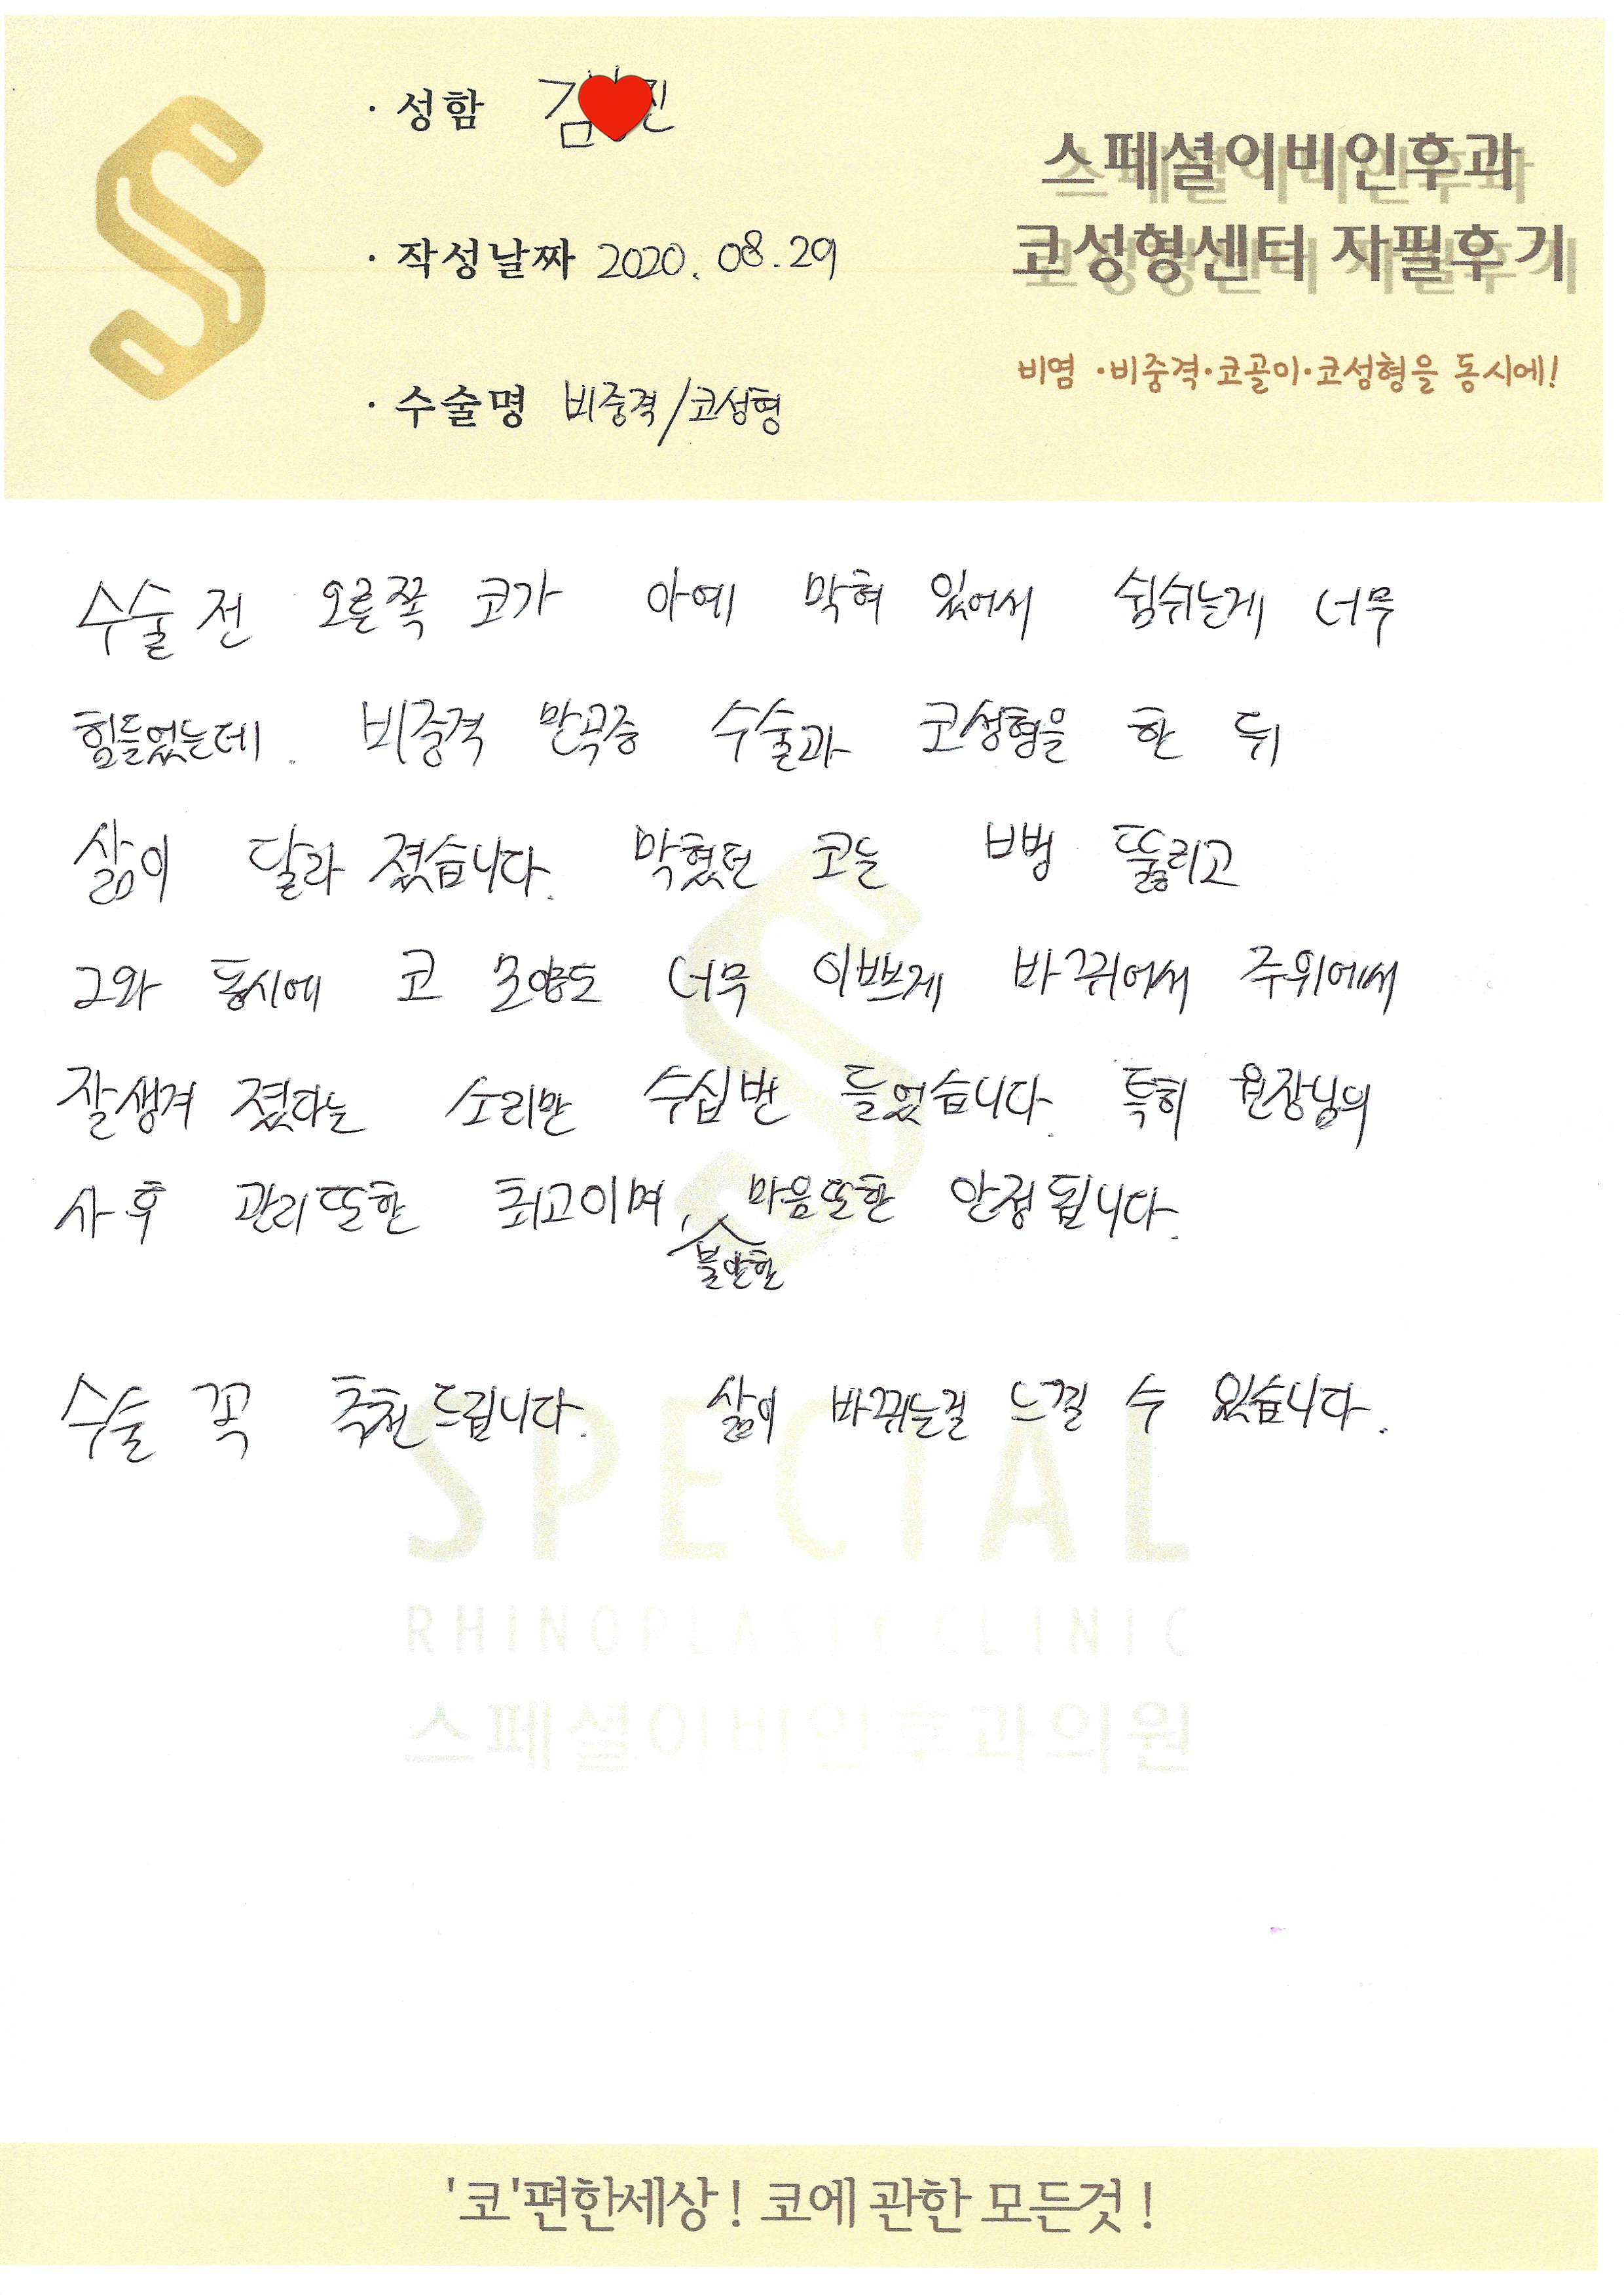 · 성함 김 진
스페셜이비인후과
코성형센터 자필후기
· 작성날짜 2020. 08. 29
비염 ·비중격·코골이·코성형을 동시에!
· 수술명 비중격/코성형
수술 전 오른쪽 코가 아예 막혀 있어서 숨쉬는게 너무
힘들었는데. 비중격 만곡증 수술과 코성형을 한 뒤
삶이 달라 졌습니다. 막혔던 코는 뻥 뚫리고
그와 동시에 코 모양도 너무 이쁘게 바뀌어서 주위에서
잘생겨 졌다는 소리만 수십번 들었습니다. 특히 원장님의
사후 관리또한 최고이며, 불안한 마음또한 안정됩니다.
수술 꼭 추천드립니다. 삶이 바뀌는걸 느낄 수 있습니다.
SPECIAL
RHINOPLASTY CLINIC
스페셜이비인후과의원
'코'편한세상! 코에 관한 모든것!